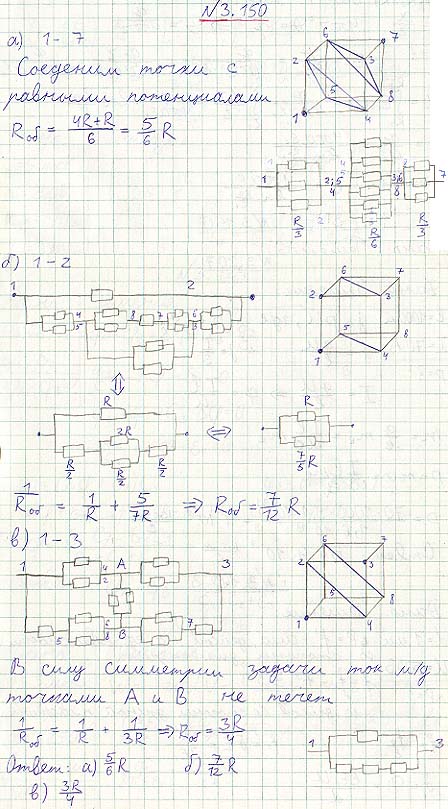 №3.150
а) 1-7
Соеденим точки с
равными потенциалами
Rоб = (4R+R)/6 = 5/6 R
6 7
2 3
5 8
1 4
1 2;5 4 3;6 8 7
R/3 R/6 R/3
б) 1-2
1 2
4 5 8 7 6 3
6 7
2 3
5 8
1 4
R
2R
R/2 R/2 R/2
R
7/5 R
1/Rоб = 1/R + 5/7R ⇒ Rоб = 7/12 R
в) 1-3
1 4 2 A 3
5 6 8 B 7
6 7
2 3
5 8
1 4
В силу симметрии задачи ток м/д
точками А и В не течет
1/Rоб = 1/R + 1/3R ⇒ Rоб = 3R/4
1 3
Ответ: а) 5/6 R б) 7/12 R
в) 3R/4